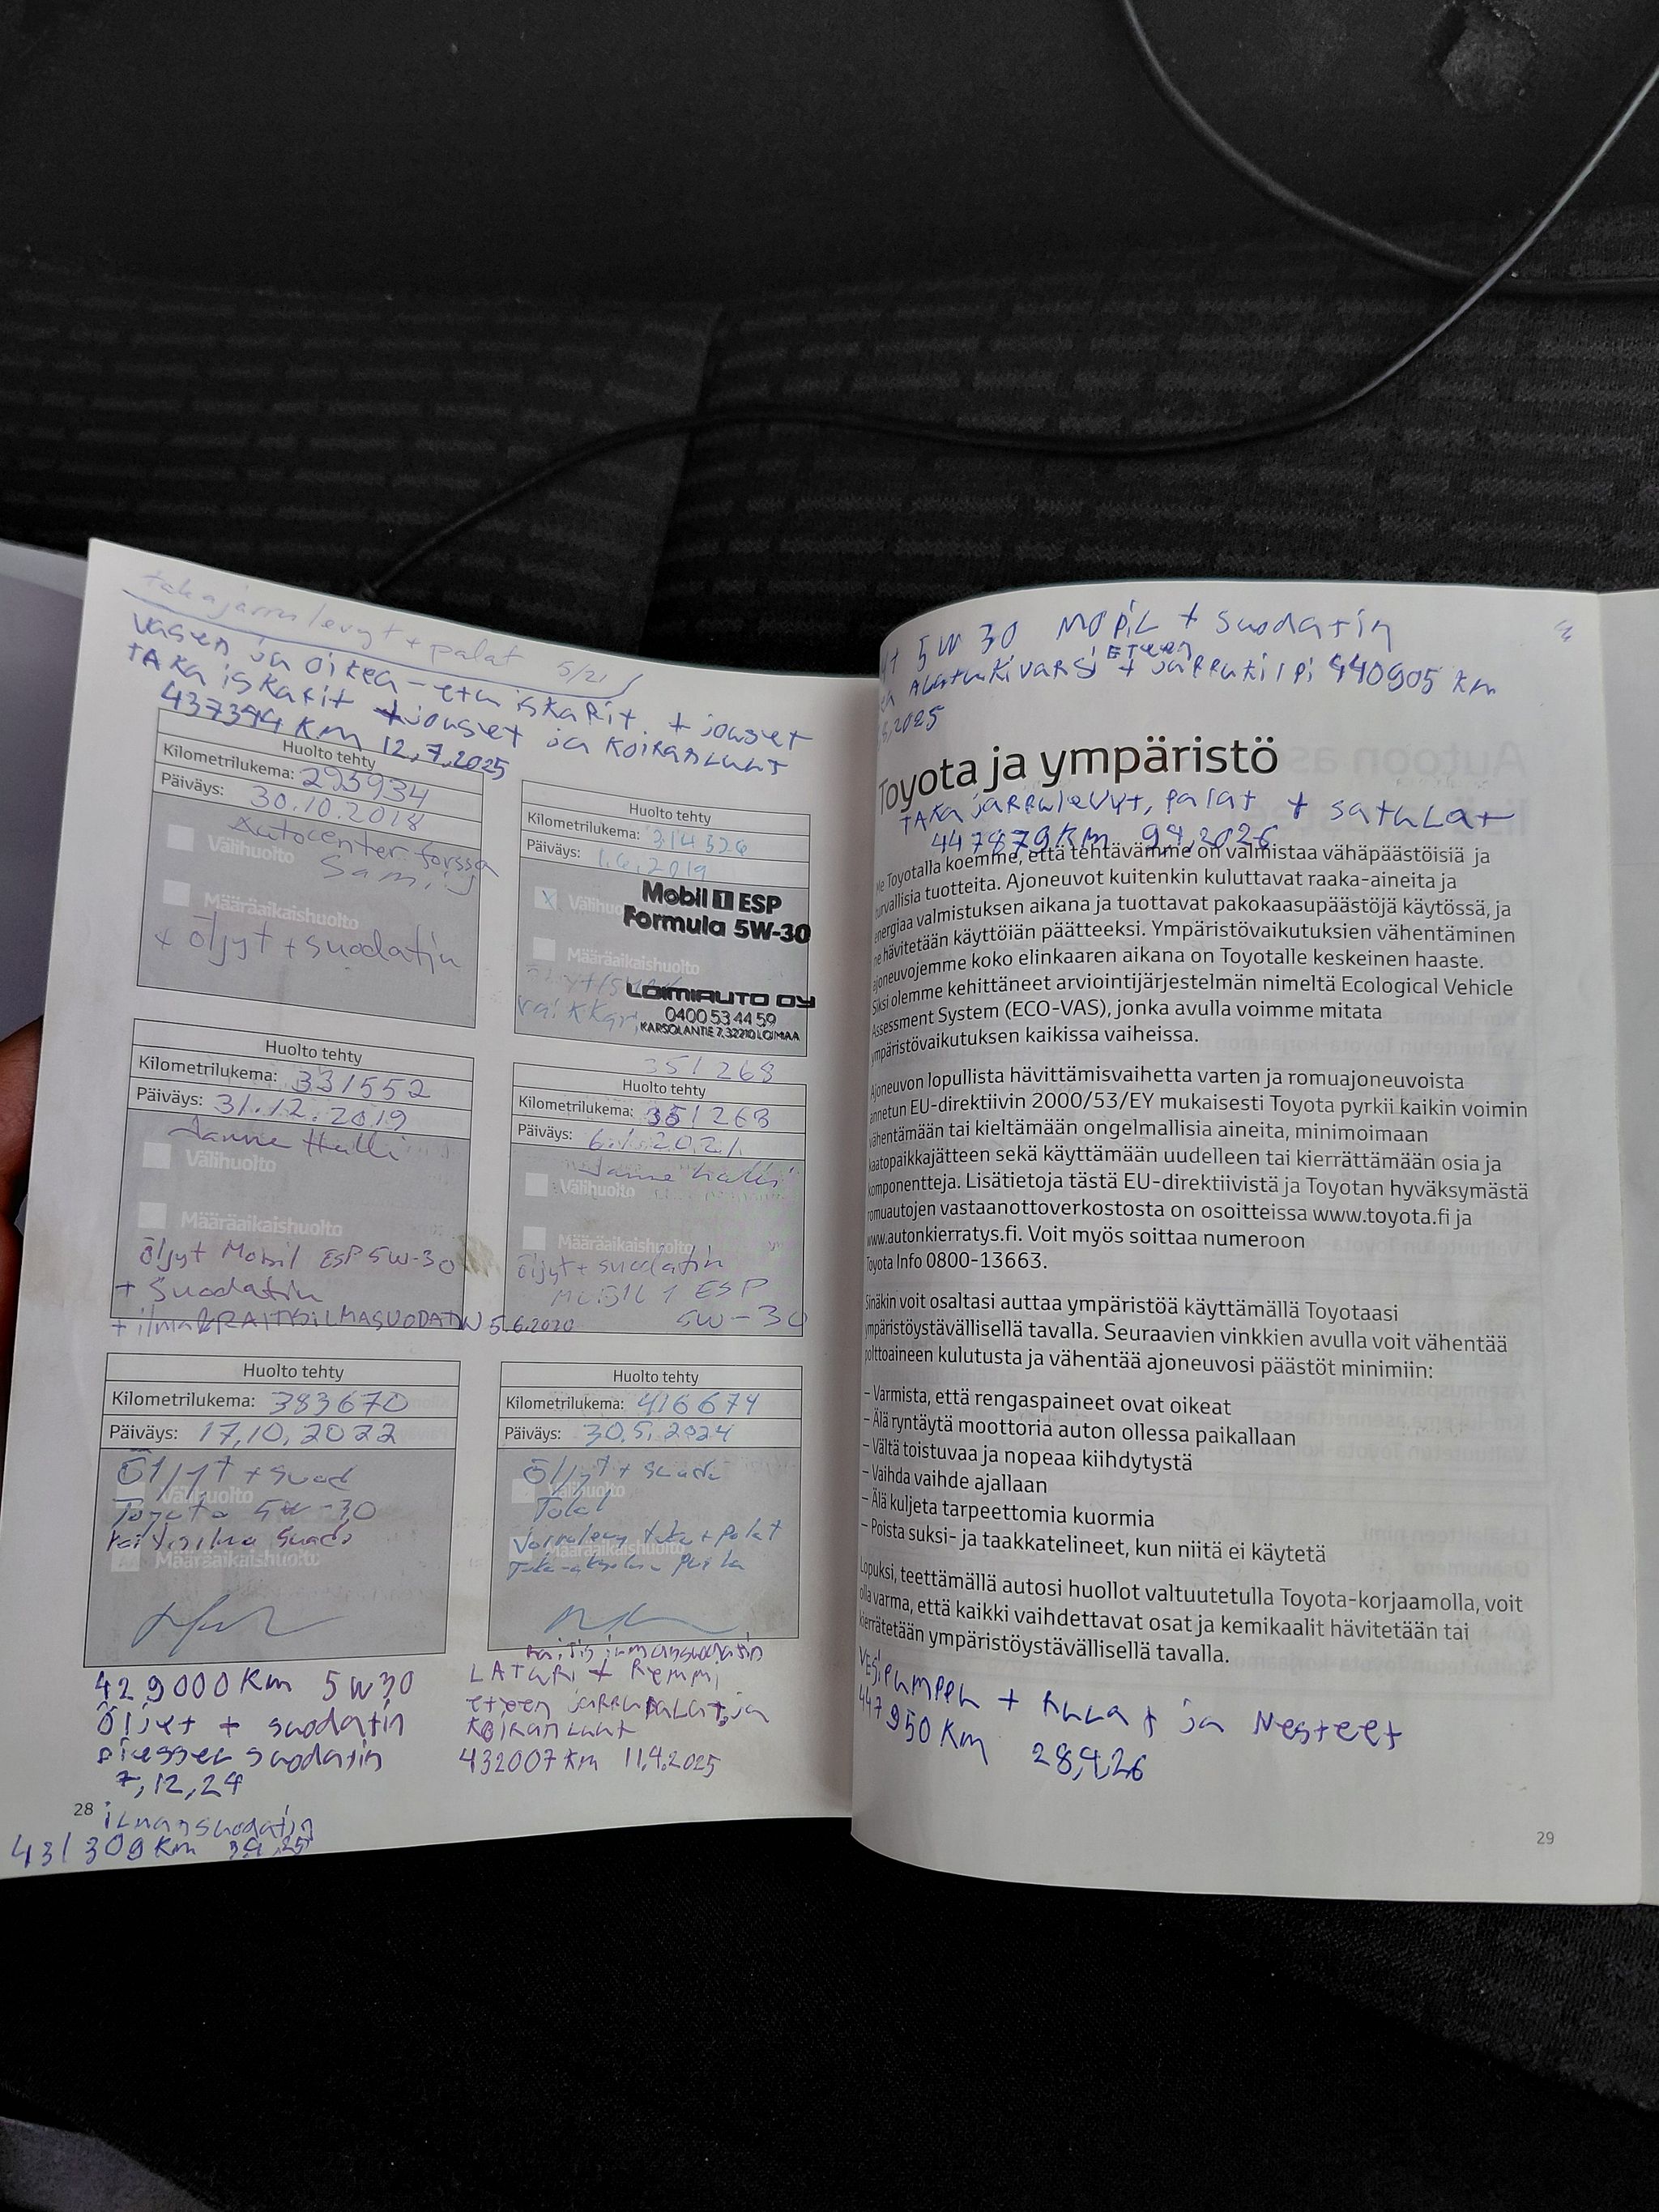 takajarrulevyt + palat 5/21
vasen ja oikea-etu iskarit + jouset
TAKA iskarit + jouset ja koiranluut
437394 km 12,7,2025
Huolto tehty
Kilometrilukema: 293934
Päiväys: 30.10.2018
Autocenter forssa
Sami
Välihuolto
Määräaikaishuolto
+ öljyt + suodatin
Huolto tehty
Kilometrilukema: 314526
Päiväys: 1.6.2019
Mobil 1 ESP
Formula 5W-30
x Välihuolto
Määräaikaishuolto
LOIMIAUTO OY
0400 53 44 59
KARSOLANTIE 7, 32210 LOIMAA
Huolto tehty
Kilometrilukema: 331552
Päiväys: 31.12.2019
Janne Halli
Välihuolto
Määräaikaishuolto
öljyt Mobil ESP 5W-30
+ Suodatin
+ RAITISILMASUODATIN 5.6.2020
351268
Huolto tehty
Kilometrilukema: 351268
Päiväys: 6.1.2021
Janne Halli
Välihuolto
Määräaikaishuolto
öljyt + suodatin
MOBIL 1 ESP
5W-30
Huolto tehty
Kilometrilukema: 383670
Päiväys: 17,10,2022
Öljyt + suod
Välihuolto
Toyota 5w-30
Raitisilma suod
Määräaikaishuolto
Huolto tehty
Kilometrilukema: 416674
Päiväys: 30.5.2024
Öljyt + suod
Välihuolto
Total
taka + palat
Määräaikaishuolto
Raitisilmansuodatin
LATURI + Remmi
eteen jarrupalat ja
koiranluut
432007 km 11.4.2025
429000 km 5W30
Öljet + suodatin
suodatin
7,12,24
28
ilmansuodatin
431309 km
5W 30 MOPIL + suodatin
Alatukivarsi ETEEN + jarrukilpi 440905 km
2025
Toyota ja ympäristö
TAKA jarrulevyt, palat + satulat
447879 km 9,4,2026
Me Toyotalla koemme, että tehtävämme on valmistaa vähäpäästöisiä ja
turvallisia tuotteita. Ajoneuvot kuitenkin kuluttavat raaka-aineita ja
energiaa valmistuksen aikana ja tuottavat pakokaasupäästöjä käytössä, ja
ne hävitetään käyttöiän päätteeksi. Ympäristövaikutuksien vähentäminen
ajoneuvojemme koko elinkaaren aikana on Toyotalle keskeinen haaste.
Siksi olemme kehittäneet arviointijärjestelmän nimeltä Ecological Vehicle
Assessment System (ECO-VAS), jonka avulla voimme mitata
ympäristövaikutuksen kaikissa vaiheissa.
Ajoneuvon lopullista hävittämisvaihetta varten ja romuajoneuvoista
annetun EU-direktiivin 2000/53/EY mukaisesti Toyota pyrkii kaikin voimin
vähentämään tai kieltämään ongelmallisia aineita, minimoimaan
kaatopaikkajätteen sekä käyttämään uudelleen tai kierrättämään osia ja
komponentteja. Lisätietoja tästä EU-direktiivistä ja Toyotan hyväksymästä
romuautojen vastaanottoverkostosta on osoitteissa www.toyota.fi ja
www.autonkierratys.fi. Voit myös soittaa numeroon
Toyota Info 0800-13663.
Sinäkin voit osaltasi auttaa ympäristöä käyttämällä Toyotaasi
ympäristöystävällisellä tavalla. Seuraavien vinkkien avulla voit vähentää
polttoaineen kulutusta ja vähentää ajoneuvosi päästöt minimiin:
– Varmista, että rengaspaineet ovat oikeat
– Älä ryntäytä moottoria auton ollessa paikallaan
– Vältä toistuvaa ja nopeaa kiihdytystä
– Vaihda vaihde ajallaan
– Älä kuljeta tarpeettomia kuormia
– Poista suksi- ja taakkatelineet, kun niitä ei käytetä
Lopuksi, teettämällä autosi huollot valtuutetulla Toyota-korjaamolla, voit
olla varma, että kaikki vaihdettavat osat ja kemikaalit hävitetään tai
kierrätetään ympäristöystävällisellä tavalla.
VESIPUMPPU + RULLAT ja Nesteet
447950 km 28,4,26
29